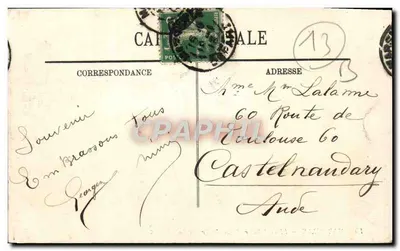 CARTE POSTALE
CORRESPONDANCE
ADRESSE
13
Souvenir
Embrassons Tous
Georges
Mme Lalanne
60 Route de
Toulouse 60
Castelnaudary
Aude